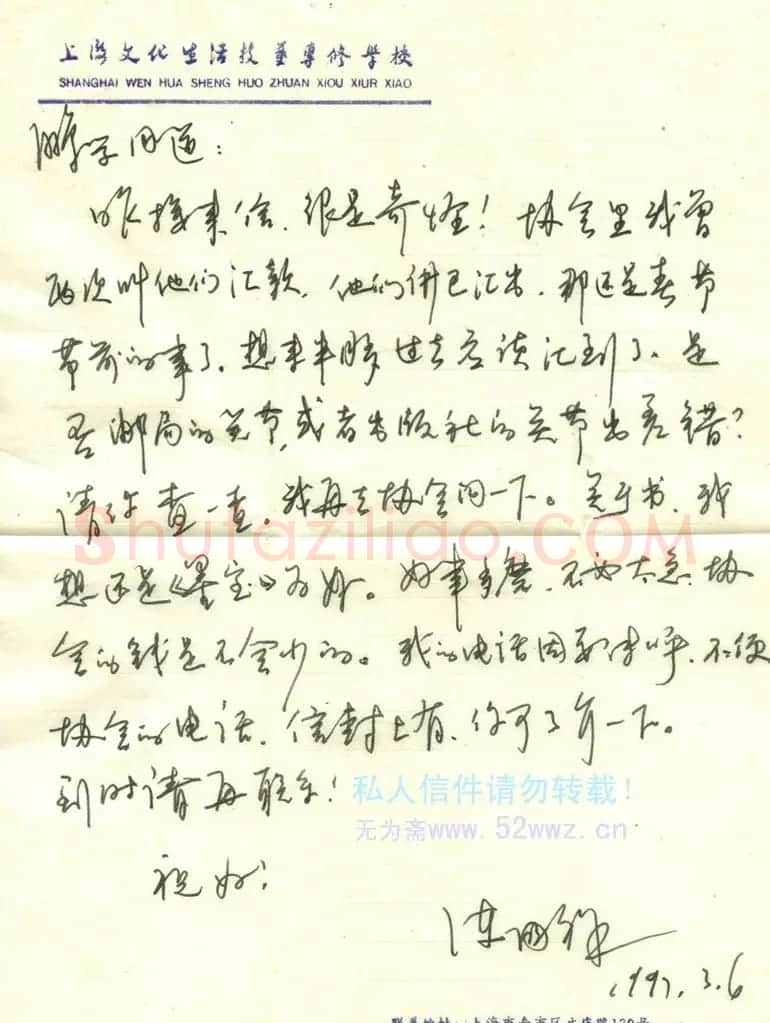 上海文化生活技艺專修學校
SHANGHAI WEN HUA SHENG HUO ZHUAN XIOU XIUR XIAO
学同道：
昨接来信，很是奇怪！协会里我曾
两次叫他们汇款，他们俱已汇出，那还是春节
节前的事了。想来半月多过去应该汇到了，是
否邮局的关节，或者出版社的关节出差错？
请你查一查。我再去协会问一下。关于书，我
想还是《墨宝》为好。好事多磨，不必太急，协
会的钱是不会少的。我的电话因要传呼，不便
协会的电话，信封上有，你可了介一下。
到时请再联系！
祝好！
1997.3.6
shufaziliao.COM
私人信件请勿转载！
无为斋www.52wwz.cn